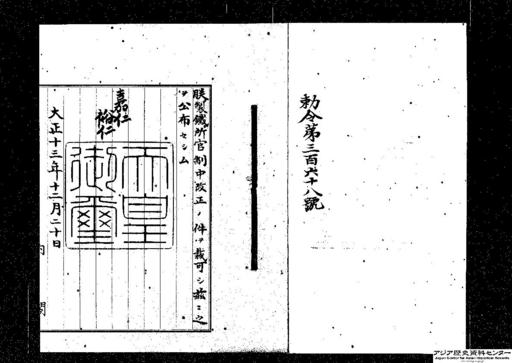 勅令第三百六十八號
朕製鐵所官制中改正ノ件ヲ裁可シ茲ニ之
ヲ公布セシム
嘉仁
裕仁
天皇御璽
大正十三年十二月二十日
内閣
アジア歴史資料センター
Japan Center for Asian Historical Records